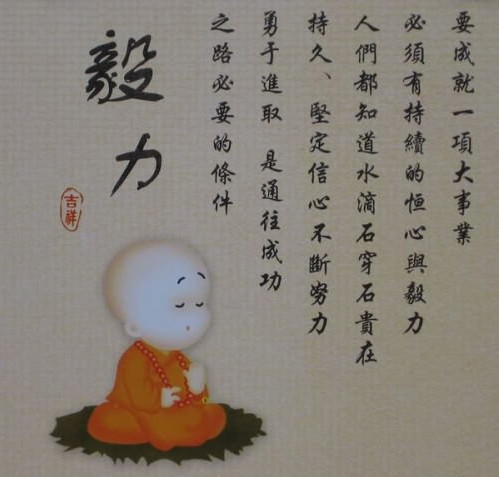 要成就一項大事業
必須有持續的恒心與毅力
人們都知道水滴石穿石貴在
持久、堅定信心不斷努力
勇于進取 是通往成功
之路必要的條件
毅力
吉祥